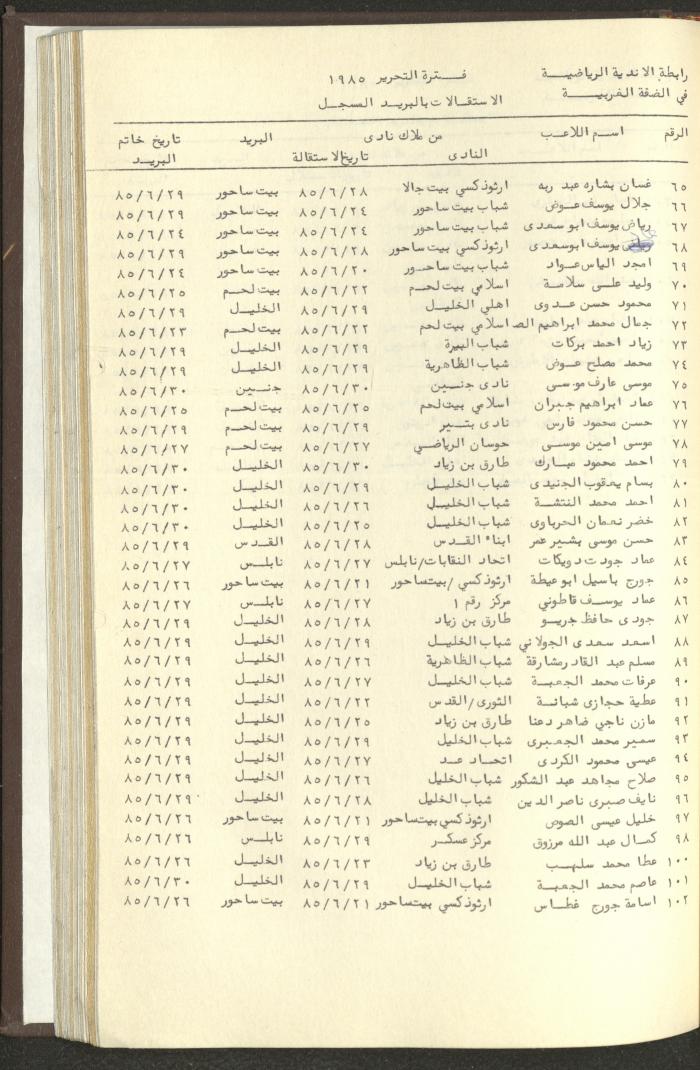 رابطة الاندية الرياضيـــة فــترة التحرير ١٩٨٥
في الضفة الغربيـــة الاستقـالات بالبريـد المسجـل
الرقم اسـم اللاعـب من ملاك نادى البريد تاريخ خاتم
النادى تاريخ الاستقالة البريـد
٦٥ غسان بشاره عبد ربه ارثوذكسي بيت جالا ٨٥/٦/٢٨ بيت ساحور ٨٥/٦/٢٩
٦٦ جلال يوسف عـوض شباب بيت ساحور ٨٥/٦/٢٤ بيت ساحور ٨٥/٦/٢٩
٦٧ رياض يوسف ابو سعدى شباب بيت ساحور ٨٥/٦/٢٤ بيت ساحور ٨٥/٦/٢٤
٦٨ يوسف ابوسعدى ارثوذكسي بيت ساحور ٨٥/٦/٢٨ بيت ساحور ٨٥/٦/٢٩
٦٩ امجد الياس عـواد شباب بيت ساحـور ٨٥/٦/٢٠ بيت ساحور ٨٥/٦/٢٤
٧٠ وليد علـى سلامـة اسلامي بيت لحـم ٨٥/٦/٢٢ بيت لحـم ٨٥/٦/٢٥
٧١ محمود حسن عـدوى اهلي الخليـل ٨٥/٦/٢٩ الخليـل ٨٥/٦/٢٩
٧٢ جمال محمد ابراهيم الصـ اسلامي بيت لحم ٨٥/٦/٢٢ بيت لحـم ٨٥/٦/٢٣
٧٣ زياد احمد بركات شباب البيرة ٨٥/٦/٢٩ الخليـل ٨٥/٦/٢٩
٧٤ محمد مصلح عـوض شباب الظاهرية ٨٥/٦/٢٩ الخليـل ٨٥/٦/٢٩
٧٥ موسى عارف موسـى نادى جنـين ٨٥/٦/٣٠ جنـين ٨٥/٦/٣٠
٧٦ عماد ابراهيم جبران اسلامي بيت لحم ٨٥/٦/٢٥ بيت لحـم ٨٥/٦/٢٥
٧٧ حسن محمود فارس نادى بتـير ٨٥/٦/٢٩ بيت لحـم ٨٥/٦/٢٩
٧٨ موسى امين موسـى حوسان الرياضـي ٨٥/٦/٢٧ بيت لحـم ٨٥/٦/٢٧
٧٩ احمد محمود مبـارك طارق بن زياد ٨٥/٦/٣٠ الخليـل ٨٥/٦/٣٠
٨٠ بسام يعقوب الجنيدى شباب الخليـل ٨٥/٦/٢٩ الخليـل ٨٥/٦/٣٠
٨١ احمد محمد النتشـة شباب الخليـل ٨٥/٦/٢٦ الخليـل ٨٥/٦/٣٠
٨٢ خضر نعمان الحرباوى شباب الخليـل ٨٥/٦/٢٥ الخليـل ٨٥/٦/٣٠
٨٣ حسن موسى بشير عمر ابناء القـدس ٨٥/٦/٢٨ القـدس ٨٥/٦/٢٩
٨٤ عماد جودت دويكات اتحاد النقابات/نابلس ٨٥/٦/٢٧ نابلـس ٨٥/٦/٢٧
٨٥ جورج باسيل ابو عيطة ارثوذكسي /بيتساحور ٨٥/٦/٢١ بيت ساحور ٨٥/٦/٢٦
٨٦ عماد يوسـف قاطوني مركز رقم ١ ٨٥/٦/٢٧ نابلـس ٨٥/٦/٢٧
٨٧ جودى حافظ جريـو طارق بن زياد ٨٥/٦/٢٨ الخليـل ٨٥/٦/٢٩
٨٨ اسعد سعدى الجولاني شباب الخليـل ٨٥/٦/٢٩ الخليـل ٨٥/٦/٢٩
٨٩ مسلم عبد القادر مشارقة شباب الظاهرية ٨٥/٦/٢٦ الخليـل ٨٥/٦/٢٩
٩٠ عرفات محمد الجعبـة شباب الخليـل ٨٥/٦/٢٧ الخليـل ٨٥/٦/٢٩
٩١ عطية حجازى شبانـة الثورى/القدس ٨٥/٦/٢٢ الخليـل ٨٥/٦/٢٩
٩٢ مازن ناجي ضاهر دعنا طارق بن زياد ٨٥/٦/٢٥ الخليـل ٨٥/٦/٢٩
٩٣ سمير محمد الجعبرى شباب الخليل ٨٥/٦/٢٩ الخليـل ٨٥/٦/٢٩
٩٤ عيسى محمود الكردى اتحـاد ٨٥/٦/٢٧ الخليـل ٨٥/٦/٢٩
٩٥ صلاح مجاهد عبد الشكور شباب الخليل ٨٥/٦/٢٦ الخليـل ٨٥/٦/٢٩
٩٦ نايف صبرى ناصر الدين شباب الخليل ٨٥/٦/٢٨ الخليـل ٨٥/٦/٢٩
٩٧ خليل عيسى الصوص ارثوذكسي بيتساحور ٨٥/٦/٢١ بيت ساحور ٨٥/٦/٢٦
٩٨ كمـال عبد الله مرزوق مركز عسكـر ٨٥/٦/٢٩ نابلـس ٨٥/٦/٢٦
١٠٠ عطا محمد سلهـب طارق بن زياد ٨٥/٦/٢٣ الخليـل ٨٥/٦/٢٦
١٠١ عاصم محمد الجعبـة شباب الخليـل ٨٥/٦/٢٩ الخليـل ٨٥/٦/٣٠
١٠٢ اسامة جورج غطـاس ارثوذكسي بيتساحور ٨٥/٦/٢١ بيت ساحور ٨٥/٦/٢٦